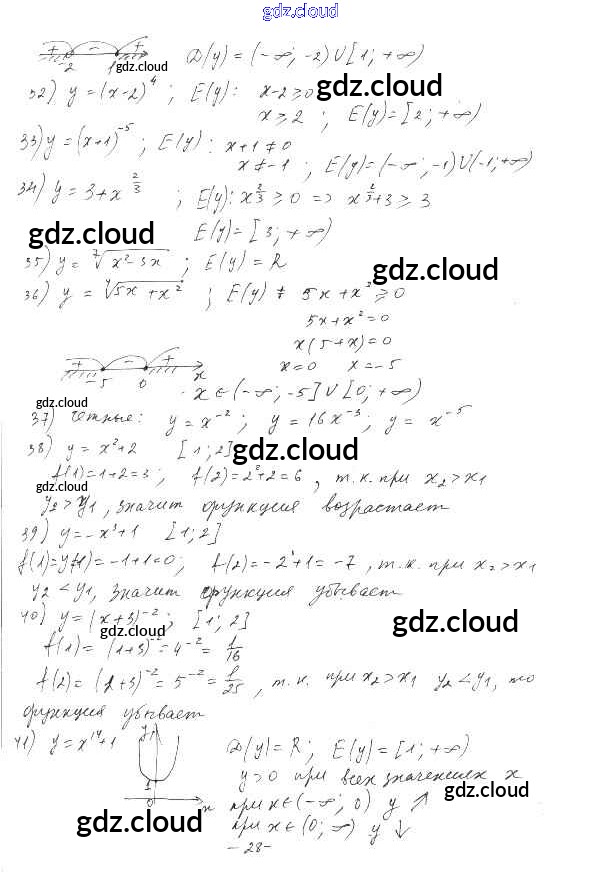 gdz.cloud
+ − +
-2 1 gdz.cloud D(y) = (-∞; -2) ∪ [1; +∞)
gdz.cloud
32) y = (x-2)⁴; E(y): x-2 ≥ 0
x ≥ 2; E(y) = [2; +∞)
33) y = (x+1)⁻⁵; E(y): x+1 ≠ 0
x ≠ -1; E(y) = (-∞; -1) ∪ (-1; +∞)
34) y = 3 + x^(2/3); E(y): x^(2/3) ≥ 0 => x^(2/3) + 3 ≥ 3
gdz.cloud E(y) = [3; +∞)
35) y = ⁷√(x² - 3x); E(y) = R
gdz.cloud
36) y = ⁴√(5x + x²); E(y) ≠ 5x + x² ≥ 0
5x + x² = 0
x(5 + x) = 0
+ − + x = 0 x = -5
-5 0 x
x ∈ (-∞; -5] ∪ [0; +∞)
gdz.cloud
37) Четные: y = x⁻²; y = 16x⁻³; y = x⁻⁵
38) y = x² + 2 [1; 2] gdz.cloud
f(1) = 1 + 2 = 3; f(2) = 2² + 2 = 6, т.к. при x₂ > x₁
gdz.cloud
y₂ > y₁, значит функция возрастает
39) y = -x³ + 1 [1; 2]
f(1) = y(1) = -1 + 1 = 0; f(2) = -2³ + 1 = -7, т.к. при x₂ > x₁
y₂ < y₁, значит функция убывает
40) y = (x+3)⁻²; [1; 2]
gdz.cloud gdz.cloud
f(1) = (1+3)⁻² = 4⁻² = 1/16
f(2) = (2+3)⁻² = 5⁻² = 1/25, т.к. при x₂ > x₁ y₂ < y₁, то
функция убывает
41) y = x¹⁴ + 1 y D(y) = R; E(y) = [1; +∞)
1 y > 0 при всех значениях x
0 x при x ∈ (-∞; 0) y ↑ gdz.cloud
gdz.cloud при x ∈ (0; ∞) y ↓
gdz.cloud
- 28 -